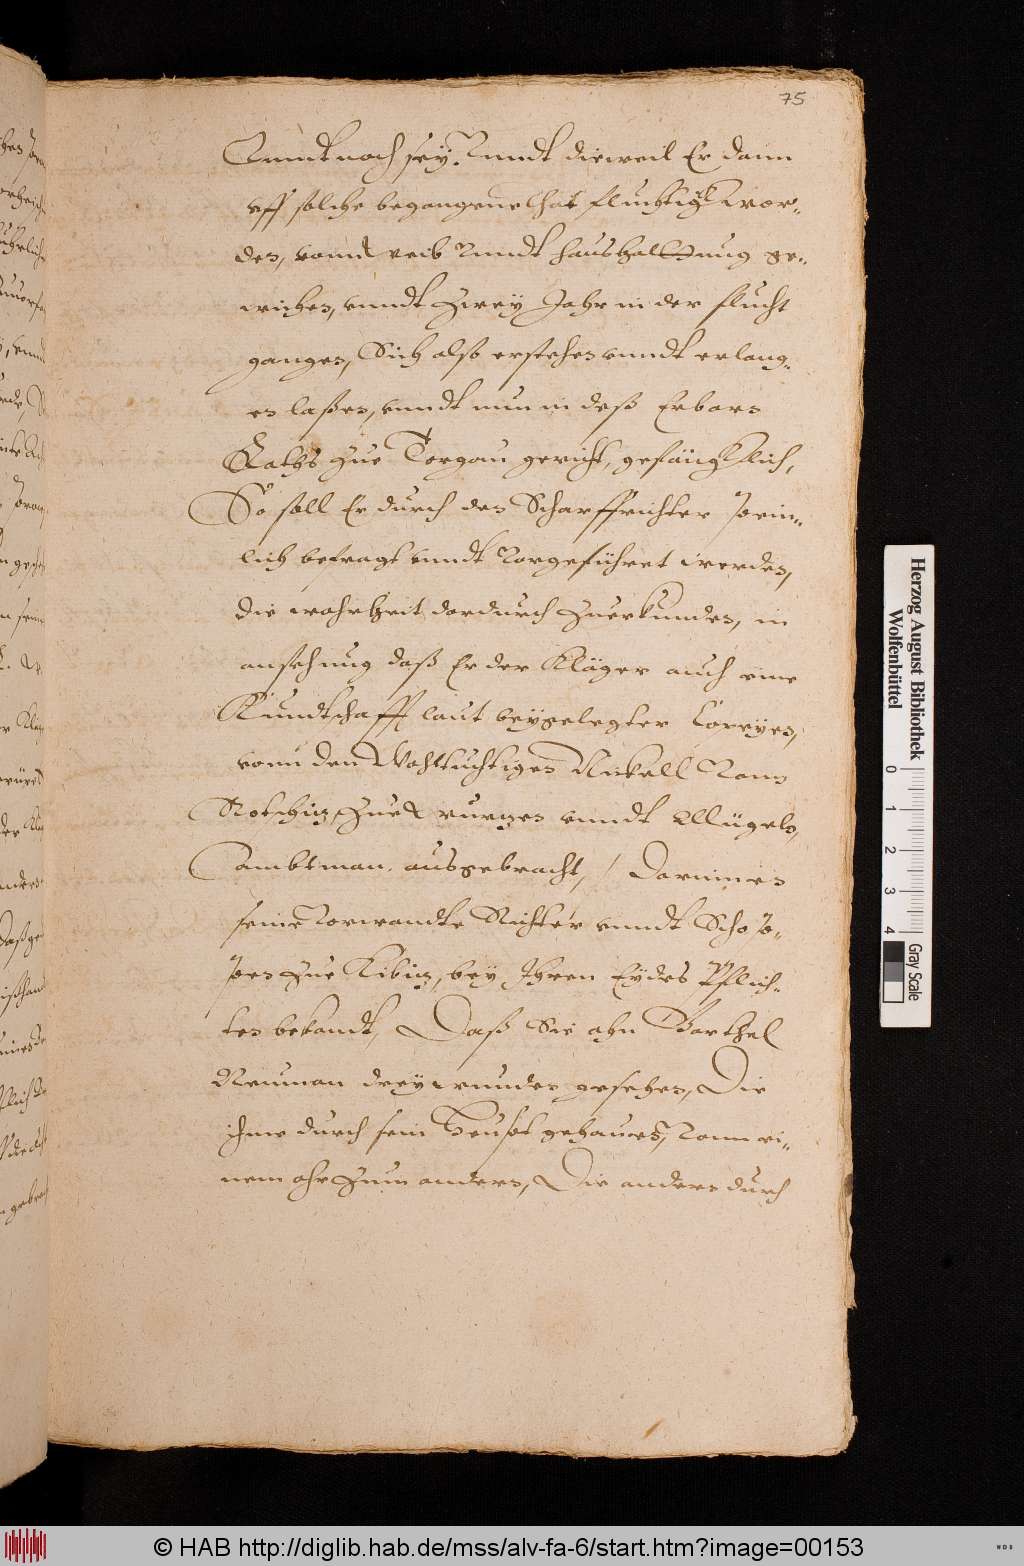 75
Vnndt noch sey. Vnndt dieweil Er dann
vff solche begangene that fluchtigk Wor-
den, vonn weib Vnndt haushaltung ge-
wichen, vnndt Zwey Jahr in der flucht
gangen, Sich also ersehen vnndt erlang-
en laßen, vnndt nun in deß Erbarn
Raths Zue Torgau gericht, gefängklich,
So soll Er durch den Scharffrichter pein-
lich befragt vnndt Vorgeführet werden,
die warheit dardurch Zuerkunden, in
ansehung daß Er der Kläger auch eine
Kundtschafft laut beygelegter Copeyen,
vonn den Wohltuchtigen Nickell Vonn
Kotschin Zue vnndt Mügeln,
ambtman. ausgebracht, / Darinnen
seine Vorwandte Richter vnndt Schop-
pen Zue Kibitz, bey Ihren Eydes Pflich-
ten bekandt, Daß Sie ahn Barthel
Neuman drey wunden gesehen, Die
ihme durch sein heupt gehauen, Vonn ei-
nem ohr Zum andern, Die ander durch
Herzog August Bibliothek
Wolfenbüttel
0 1 2 3 4
Gray Scale
© HAB http://diglib.hab.de/mss/alv-fa-6/start.htm?image=00153